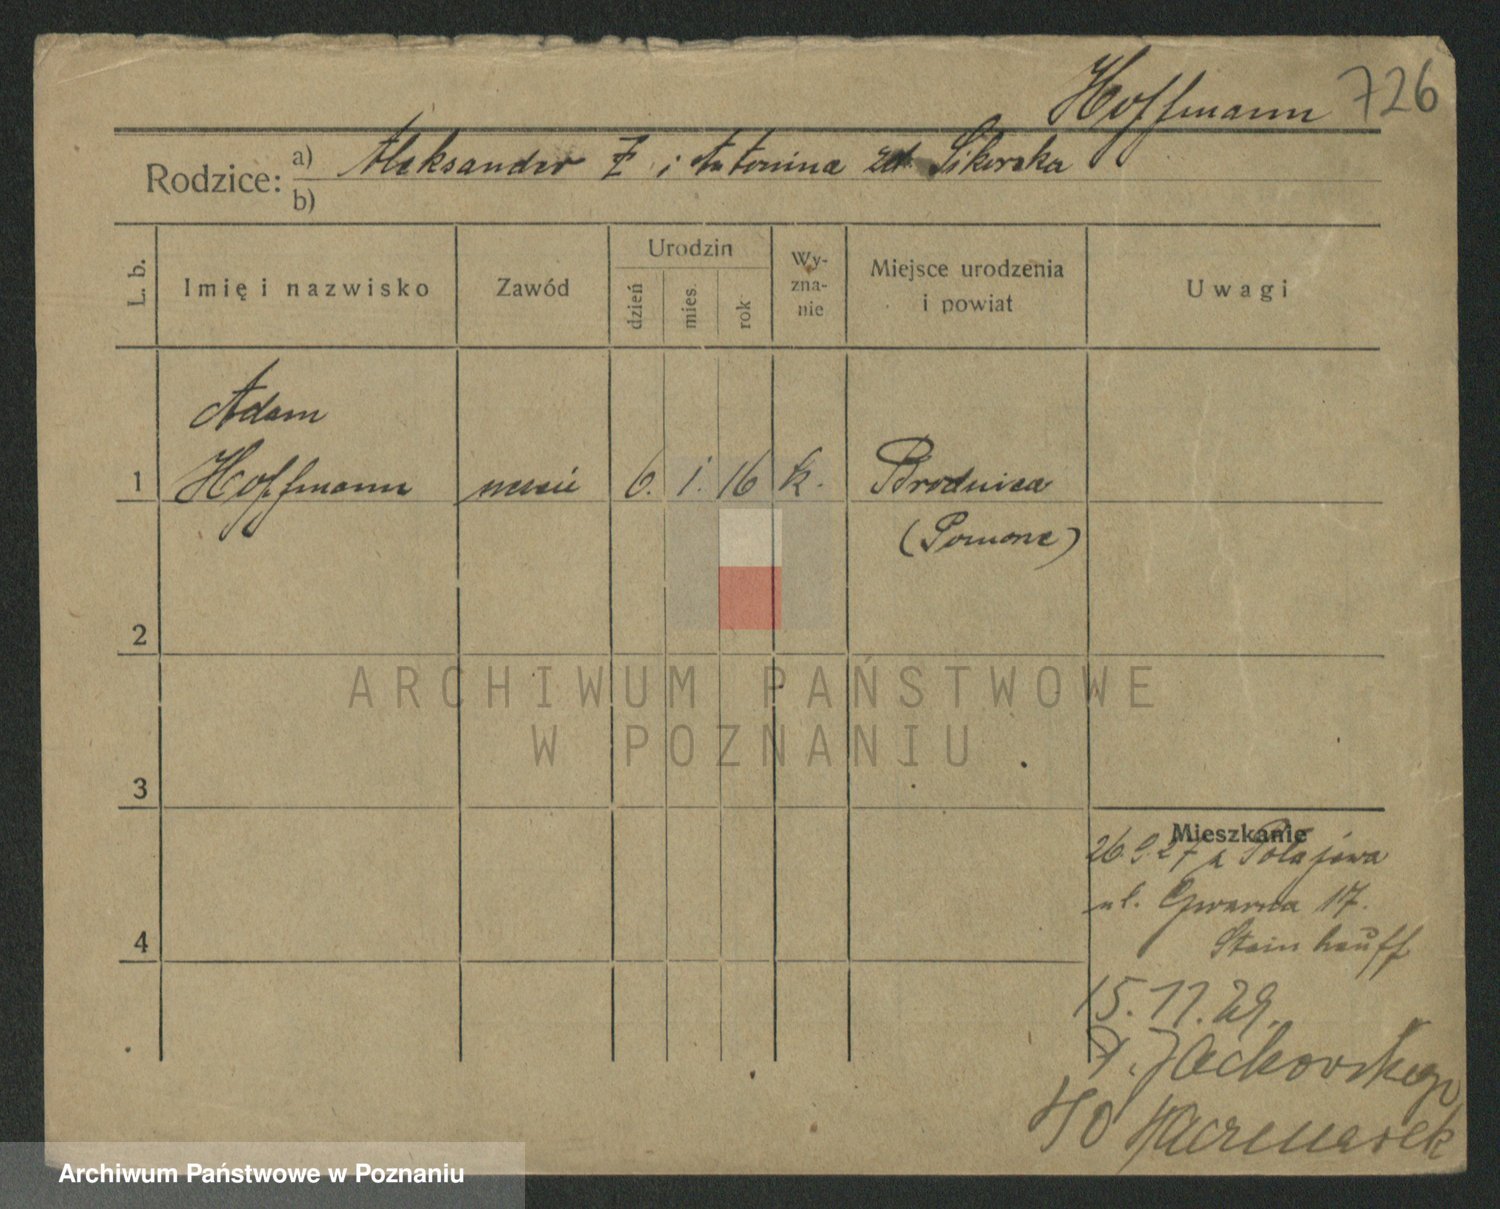 Hoffmann 726
Rodzice: a) Aleksander i Antonina Sikorska
b)
L. b. Imię i nazwisko Zawód Urodzin dzień mies. rok Wy-zna-nie Miejsce urodzenia i powiat Uwagi
Adam
1 Hoffmann uczeń 6. 1. 16 k. Brodnica
(Pomorze)
2
ARCHIWUM PAŃSTWOWE
W POZNANIU
3
Mieszkanie
26.9.27 z Połajewa
ul. Gwarna 17.
Steinhauff
15.11.29.
Jackowskiego
40 Kaczmarek
4
Archiwum Państwowe w Poznaniu